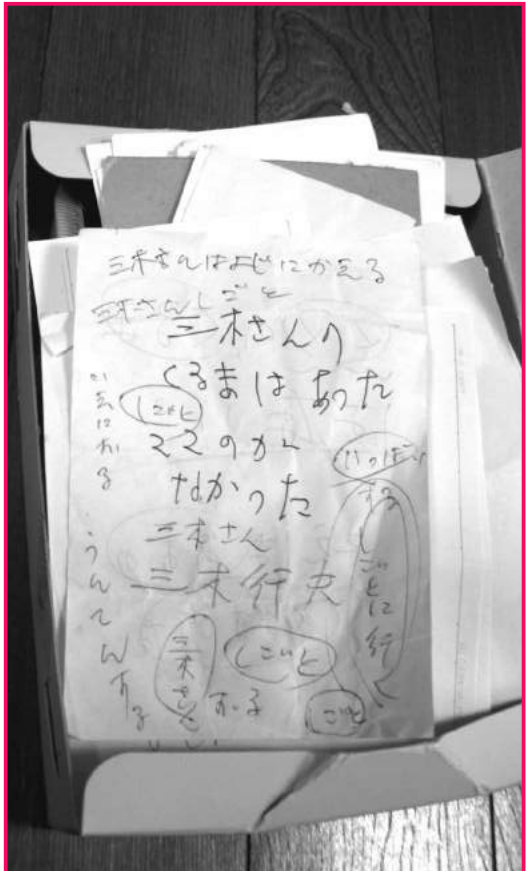 三木さんはよじにかえる
三木さんしごと
三木さんの
くるまは あった
しごと
ママのが
なかった
三木さん
三木行夫
いっぱい
する
しごとに行く
うんてんする
三木さん
しごと
する
ごと